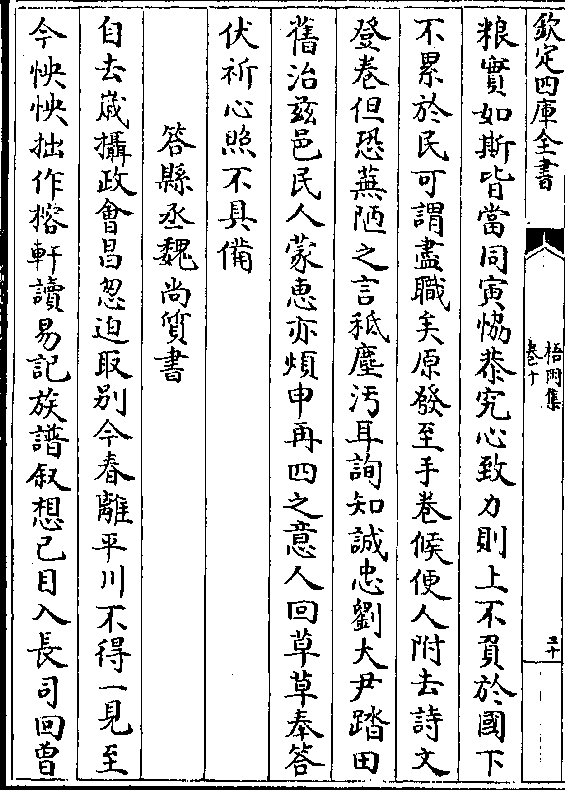 欽定四庫全書
梧岡集
卷十
三十
粮實如斯皆當同寅恊恭究心致力則上不負於國下
不累於民可謂盡職矣原發至手卷候便人附去詩文
登卷但恐蕪陋之言秪塵汚耳詢知誠忠劉大尹踏田
舊治兹邑民人蒙惠亦煩申再四之意人回草草奉答
伏祈心照不具備
答縣丞魏尚質書
自去嵗攝政會昌忽迫取别今春離平川不得一見至
今怏怏拙作榕軒讀易記族譜叙想已目入長司回曽